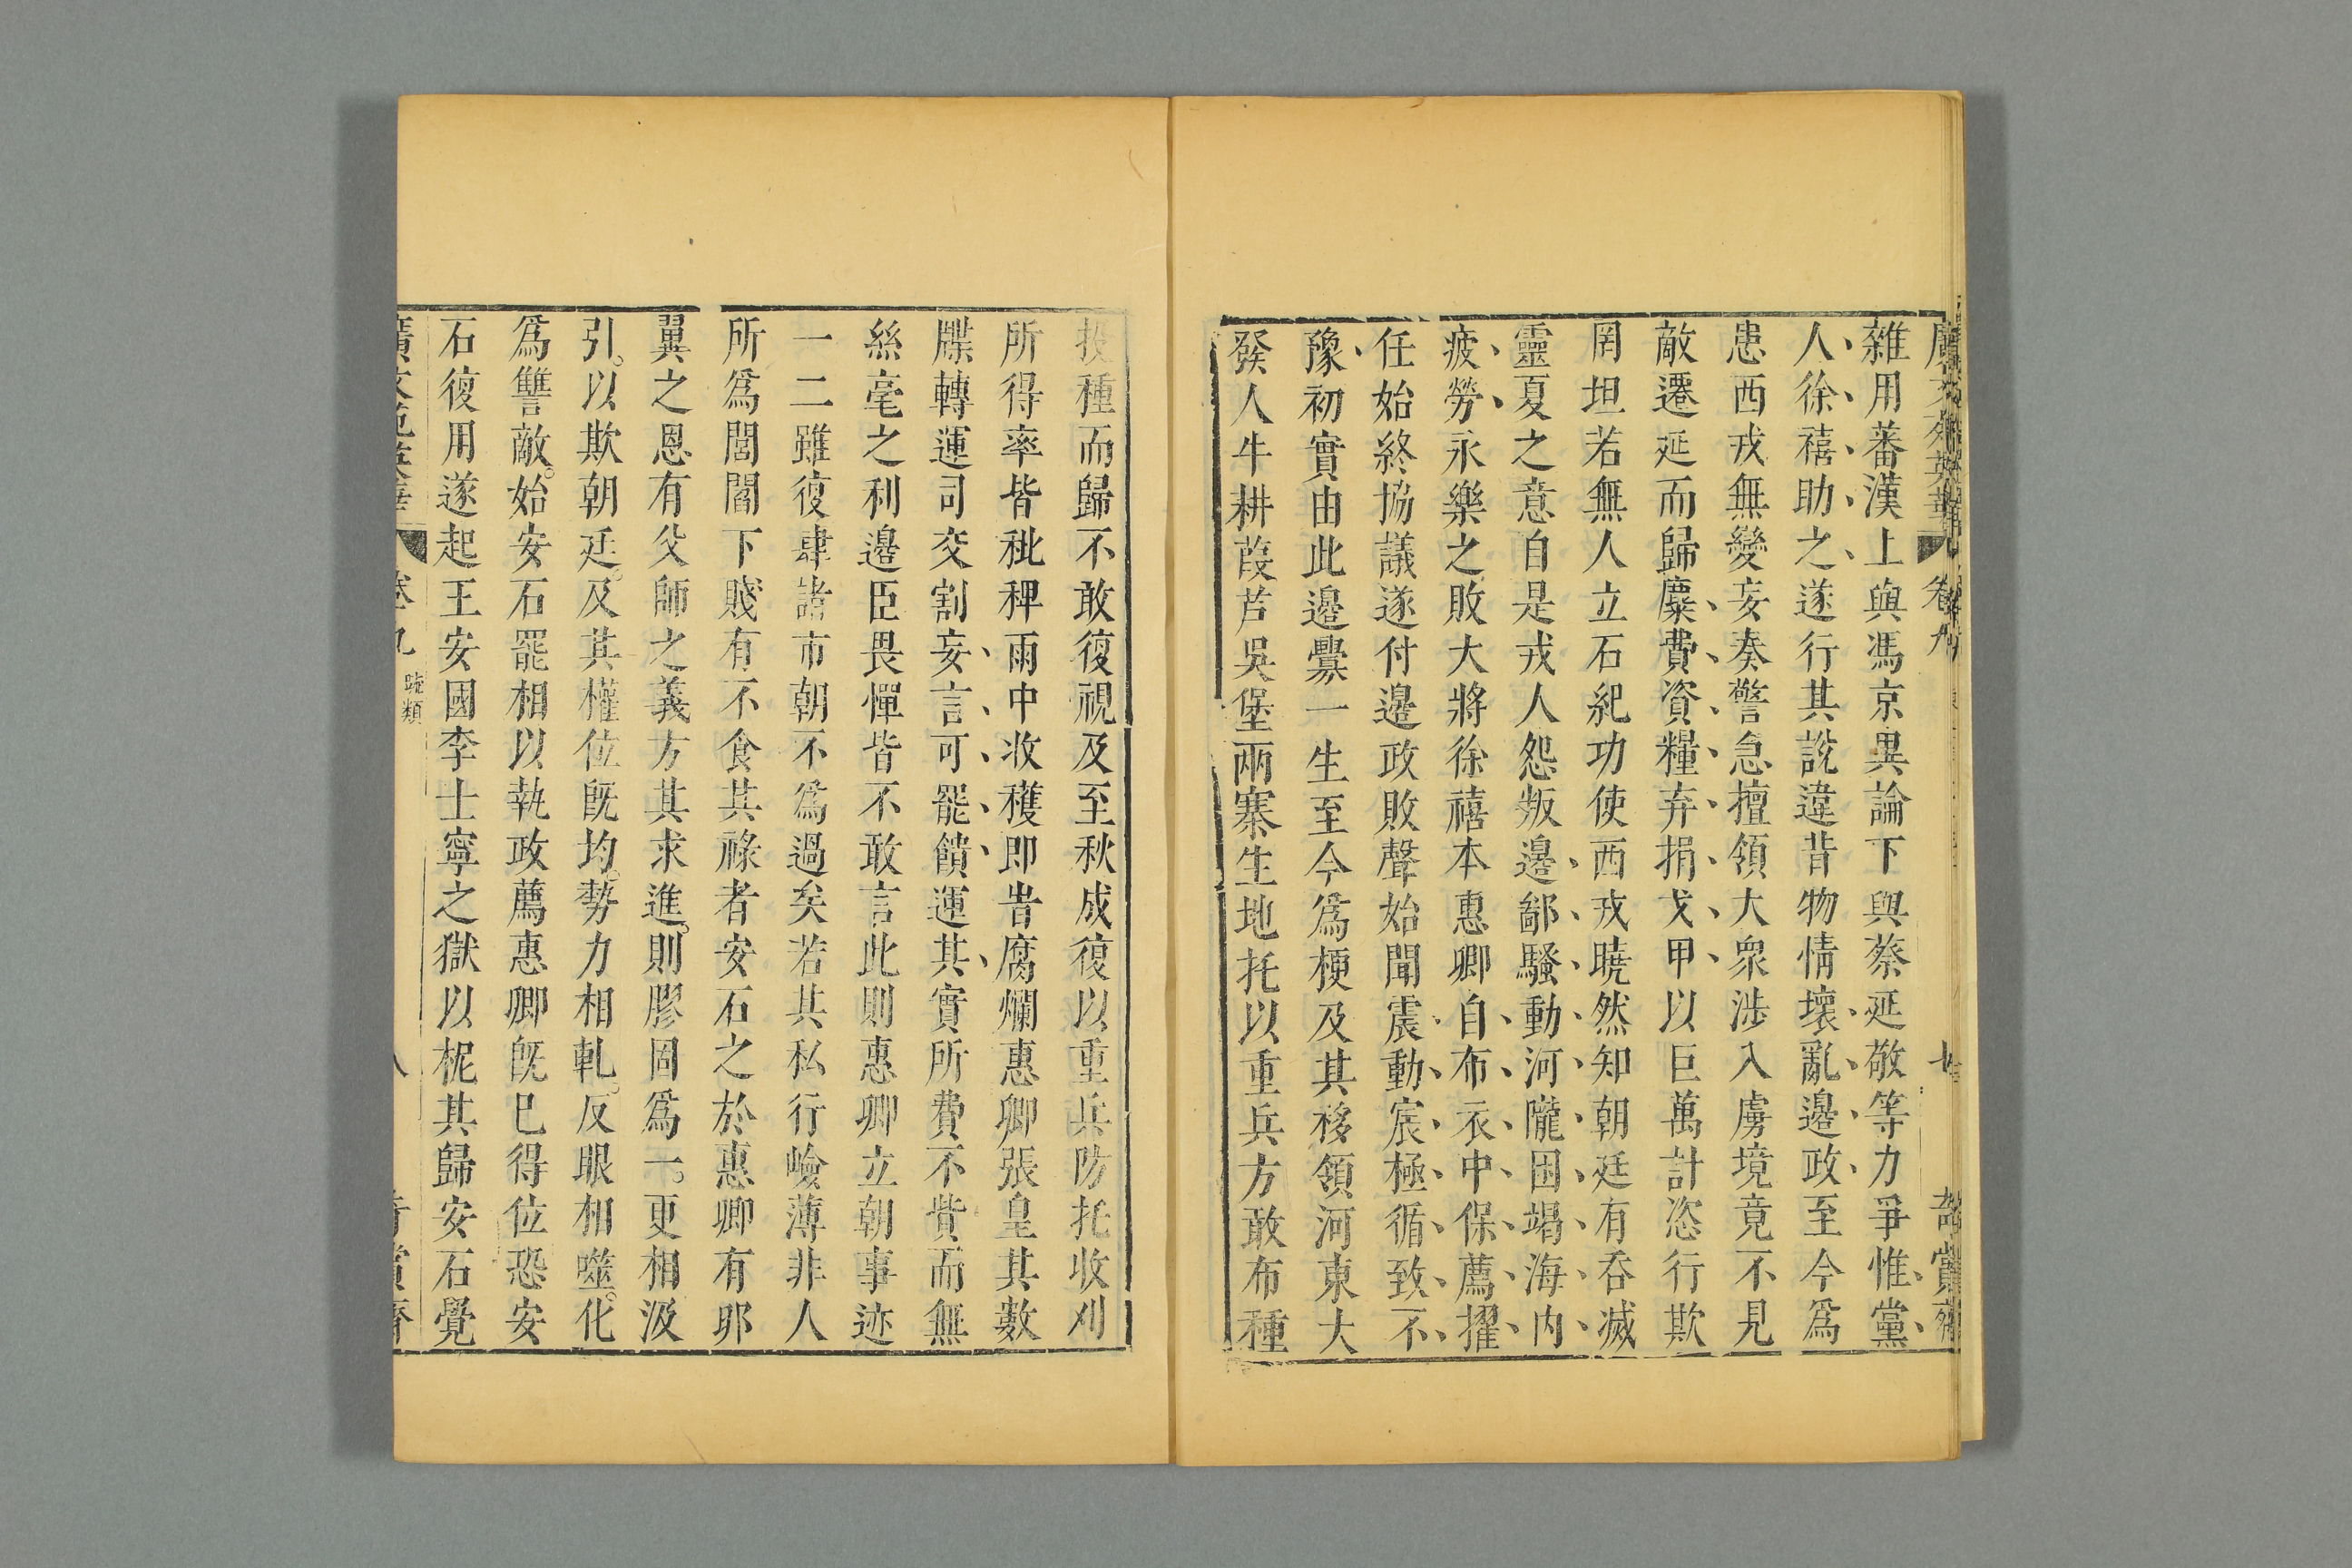 雜用蕃漢上與馮京異論下與蔡延敬等力爭惟黨
人徐禧助之遂行其說違背物情壞亂邊政至今爲
患西戎無變妄奏警急擅領大衆涉入虜境竟不見
敵遷延而歸麋費資糧弃捐戈甲以巨萬計恣行欺
罔坦若無人立石紀功使西戎曉然知朝廷有吞滅
靈夏之意自是戎人怨叛邊鄙騷動河隴困竭海内
疲勞永樂之敗大將徐禧本惠卿自布衣中保薦擢
任始終協議遂付邊政敗聲始聞震動宸極循致不
豫初實由此邊釁一生至今爲梗及其移領河東大
發人牛耕葭芦吳堡兩寨生地托以重兵方敢布種
投種而歸不敢復視及至秋成復以重兵防托收刈
所得率皆秕稗雨中收穫即皆腐爛惠卿張皇其數
牒轉運司交割妄言可罷饋運其實所費不貲而無
絲毫之利邊臣畏憚皆不敢言此則惠卿立朝事迹
一二雖復肆諸市朝不爲過矣若其私行嶮薄非人
所爲閭閻下賤有不食其祿者安石之於惠卿有卵
翼之恩有父師之義方其求進則膠固爲一更相汲
引以欺朝廷及其權位旣均勢力相軋反眼相噬化
爲讐敵始安石罷相以執政薦惠卿旣巳得位恐安
石復用遂起王安國李士寧之獄以柅其歸安石覺
廣文苑英華 卷九 疏類 八